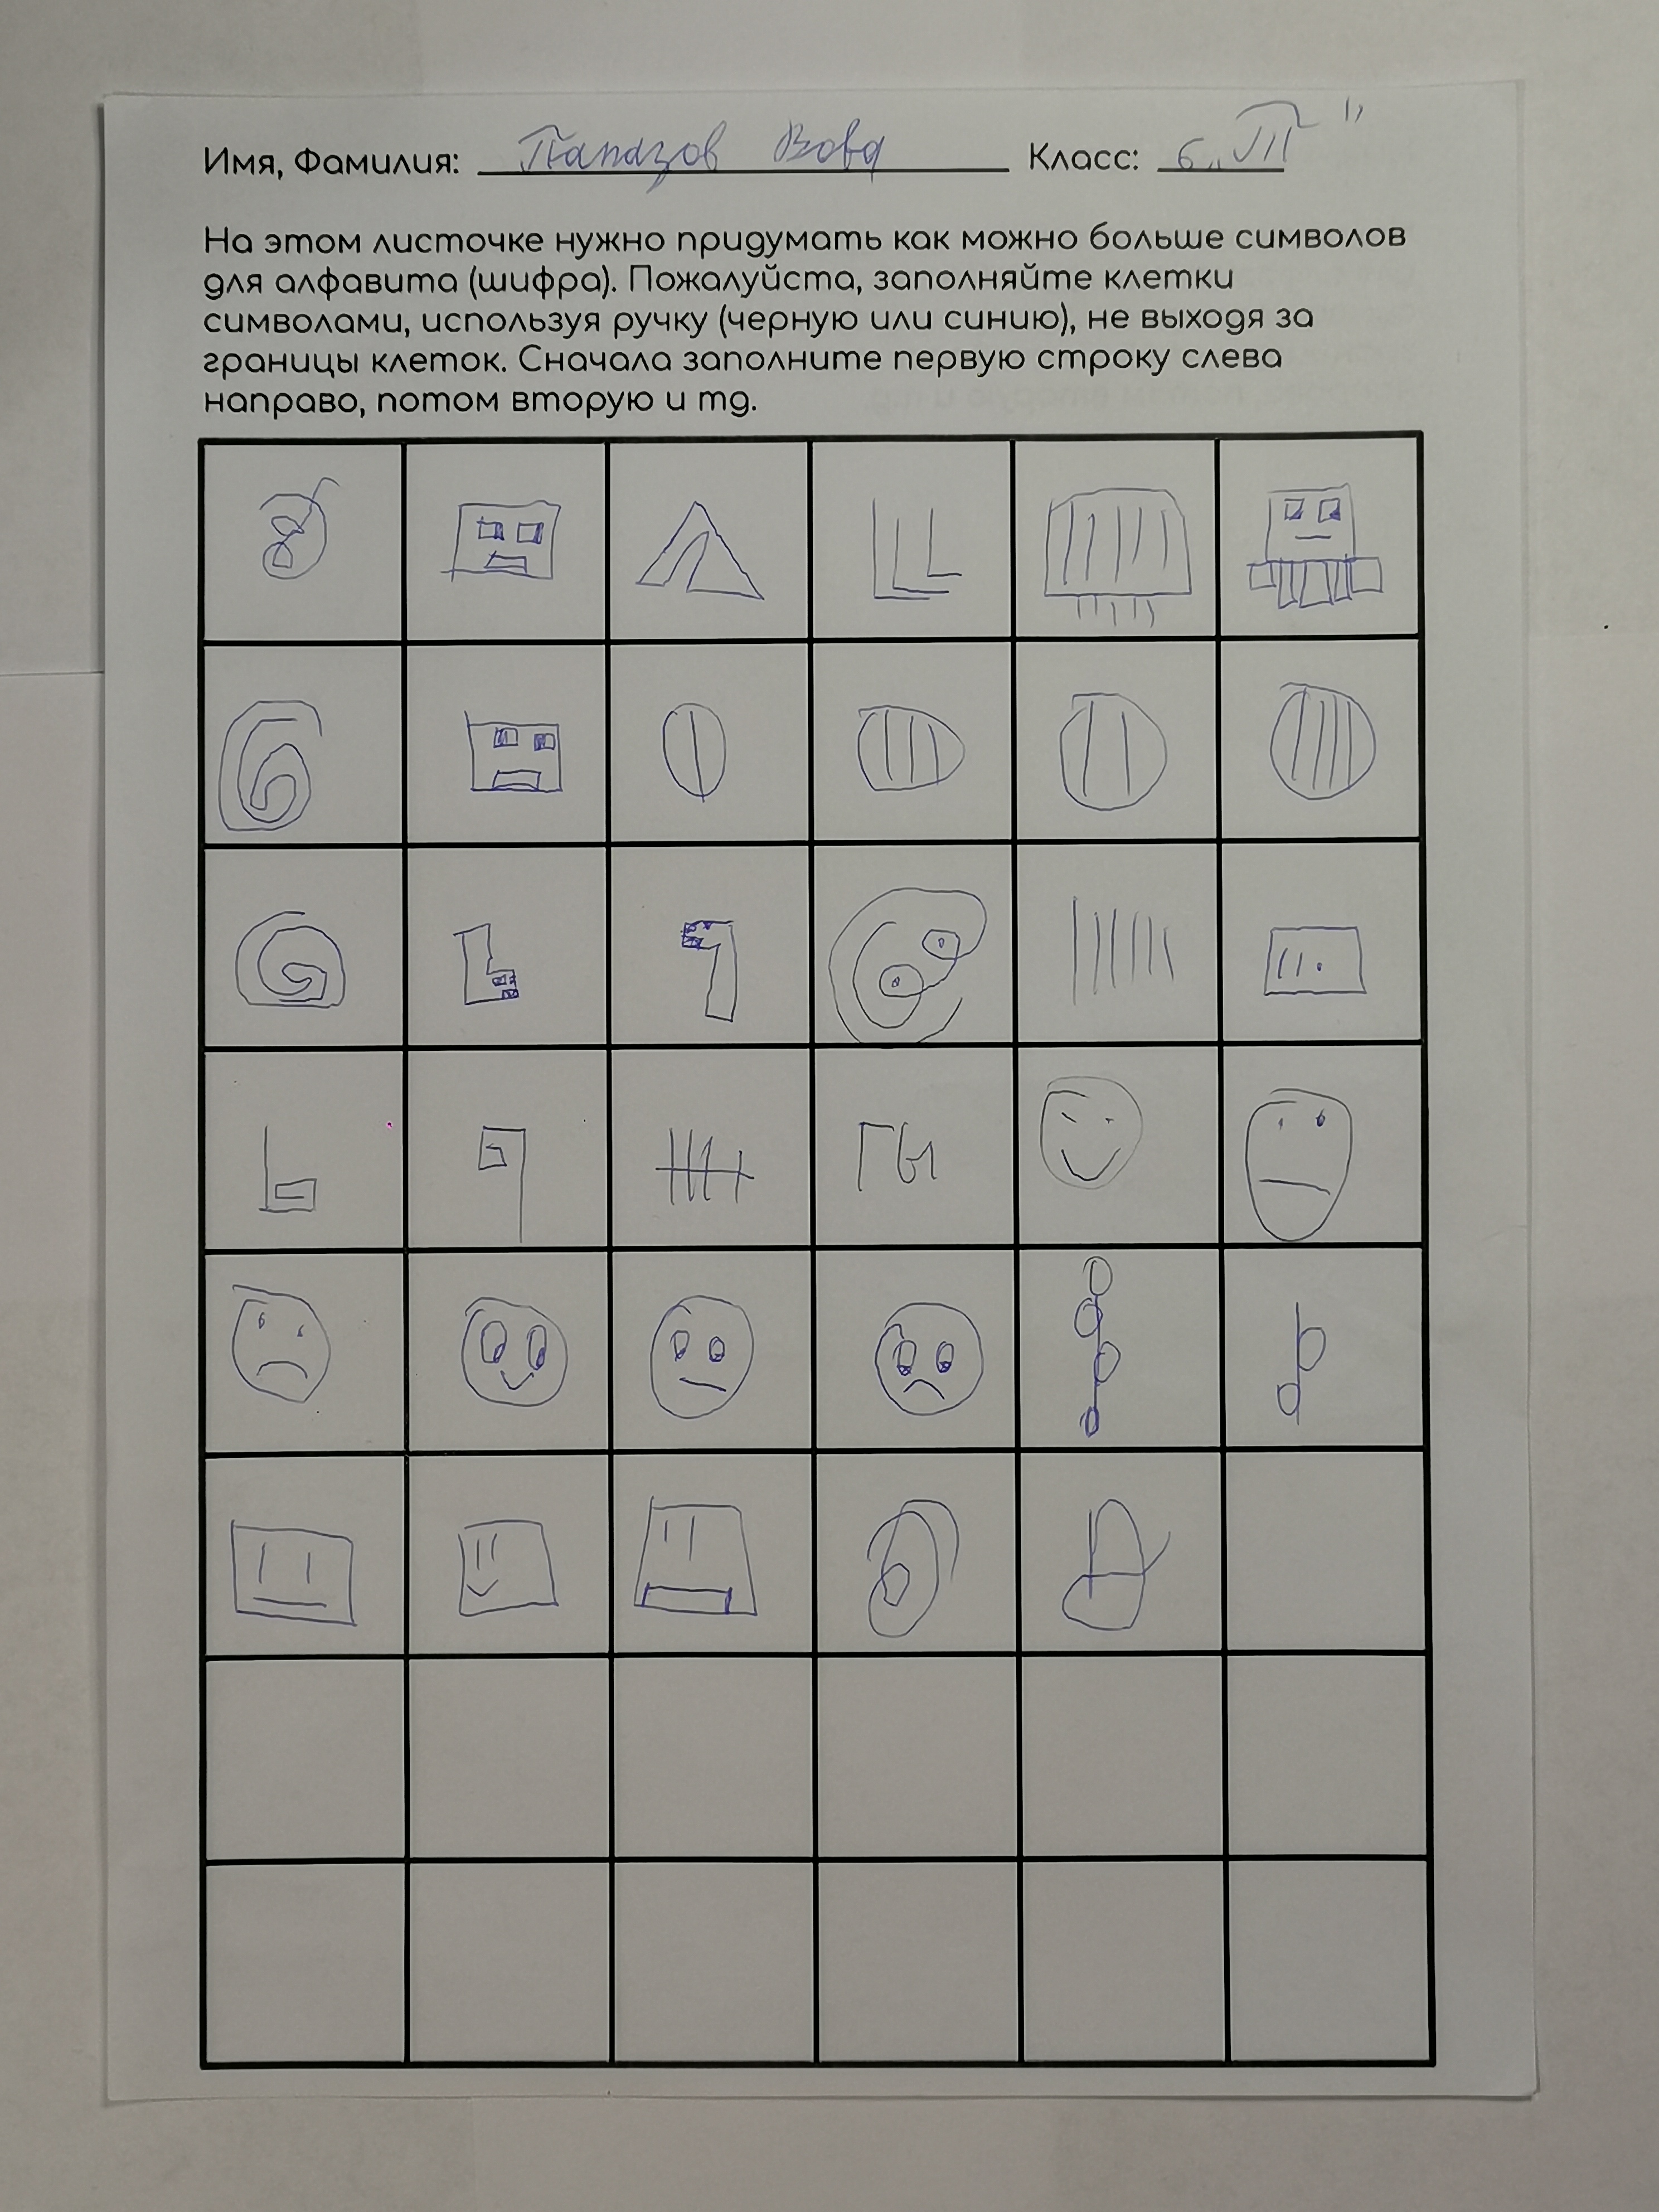 Имя, Фамилия: Папазов Вова Класс: 6 „П"
На этом листочке нужно придумать как можно больше символов
для алфавита (шифра). Пожалуйста, заполняйте клетки
символами, используя ручку (черную или синию), не выходя за
границы клеток. Сначала заполните первую строку слева
направо, потом вторую и тд.
гы